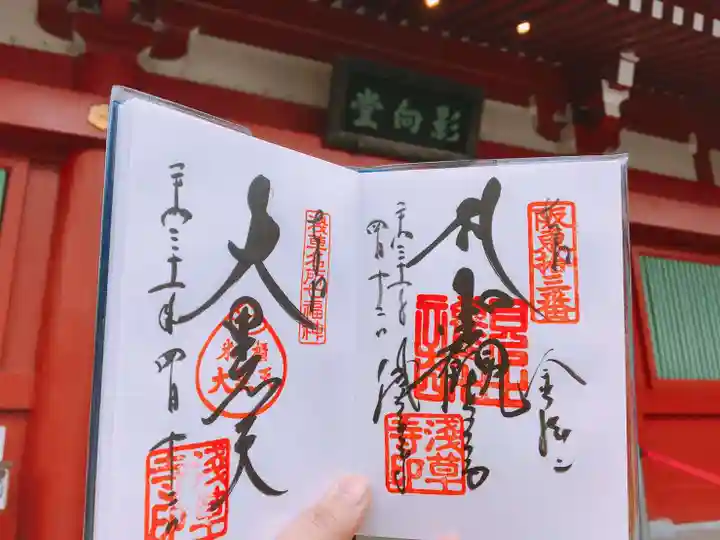 影向堂
坂東拾三番
奉拝
聖観世音
金龍山
浅草寺
平成三十一年
四月十二日
浅草寺印
浅草名所七福神
奉拝
大黒天
平成三十一年四月十二日
浅草寺印